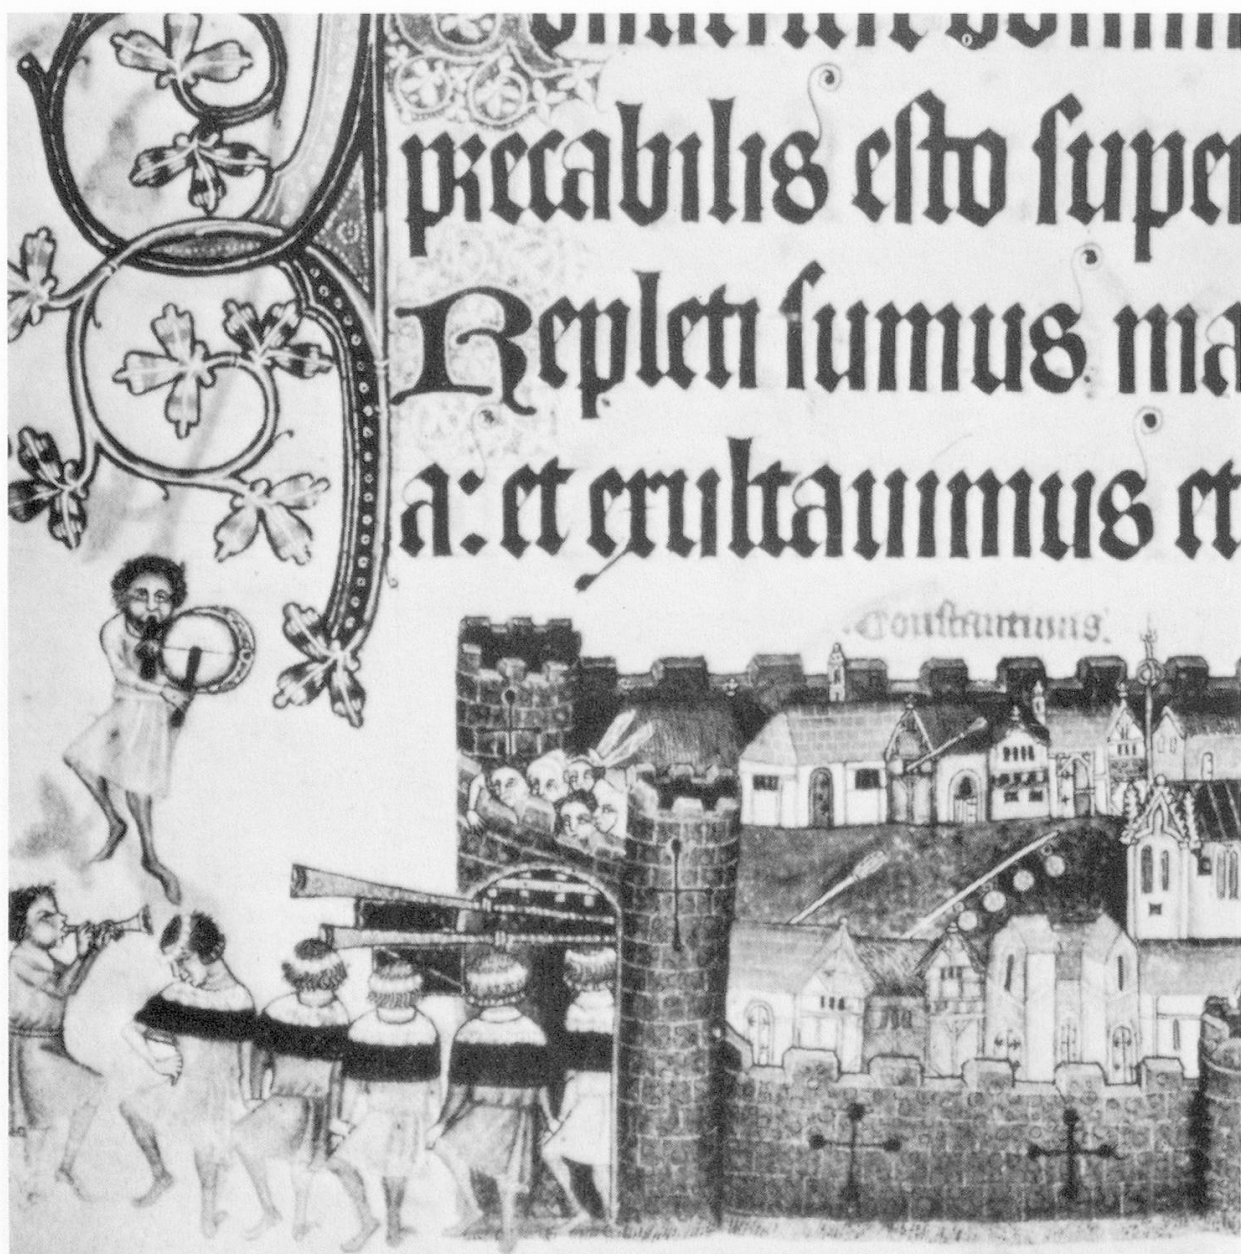 precabilis esto super
Repleti sumus ma
a: et exultauimus et
.Constantinus.